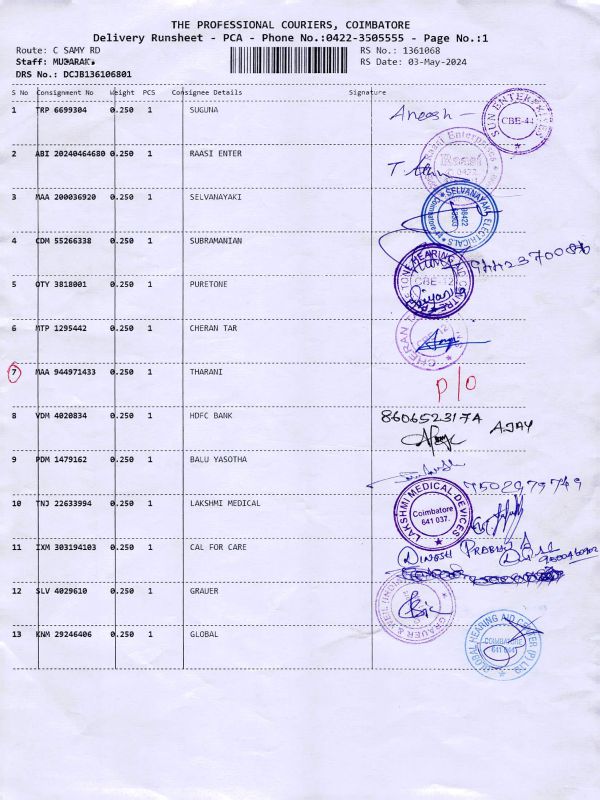 THE PROFESSIONAL COURIERS, COIMBATORE
Delivery Runsheet - PCA - Phone No.:0422-3505555 - Page No.:1
Route: C SAMY RD RS No.: 1361068
Staff: MUBARAK. RS Date: 03-May-2024
DRS No.: DCJB136106801
S No Consignment No Weight PCS Consignee Details Signature
1 TRP 6699304 0.250 1 SUGUNA Aneesh SUN ENTERPRISES CBE-44
2 ABI 20240464680 0.250 1 RAASI ENTER Raasi Enterprises Raasi
3 MAA 200036920 0.250 1 SELVANAYAKI SELVANAYAKI ELECTRICALS
4 CDM 55266338 0.250 1 SUBRAMANIAN
5 OTY 3818001 0.250 1 PURETONE TONE HEARING AID CENTRE CBE-12
6 MTP 1295442 0.250 1 CHERAN TAR CHERAN CBE-12
7 MAA 944971433 0.250 1 THARANI P/O
8 VDM 4020834 0.250 1 HDFC BANK 860652317A AJAY
9 PDM 1479162 0.250 1 BALU YASOTHA
10 TNJ 22633994 0.250 1 LAKSHMI MEDICAL LAKSHMI MEDICAL DEVICES Coimbatore 641 037.
11 IXM 303194103 0.250 1 CAL FOR CARE DINESH PRABHU
12 SLV 4029610 0.250 1 GRAUER GRAUER & WEIL
13 KNM 29246406 0.250 1 GLOBAL GLOBAL HEARING AID CENTER (P) LTD COIMBATORE 641 044